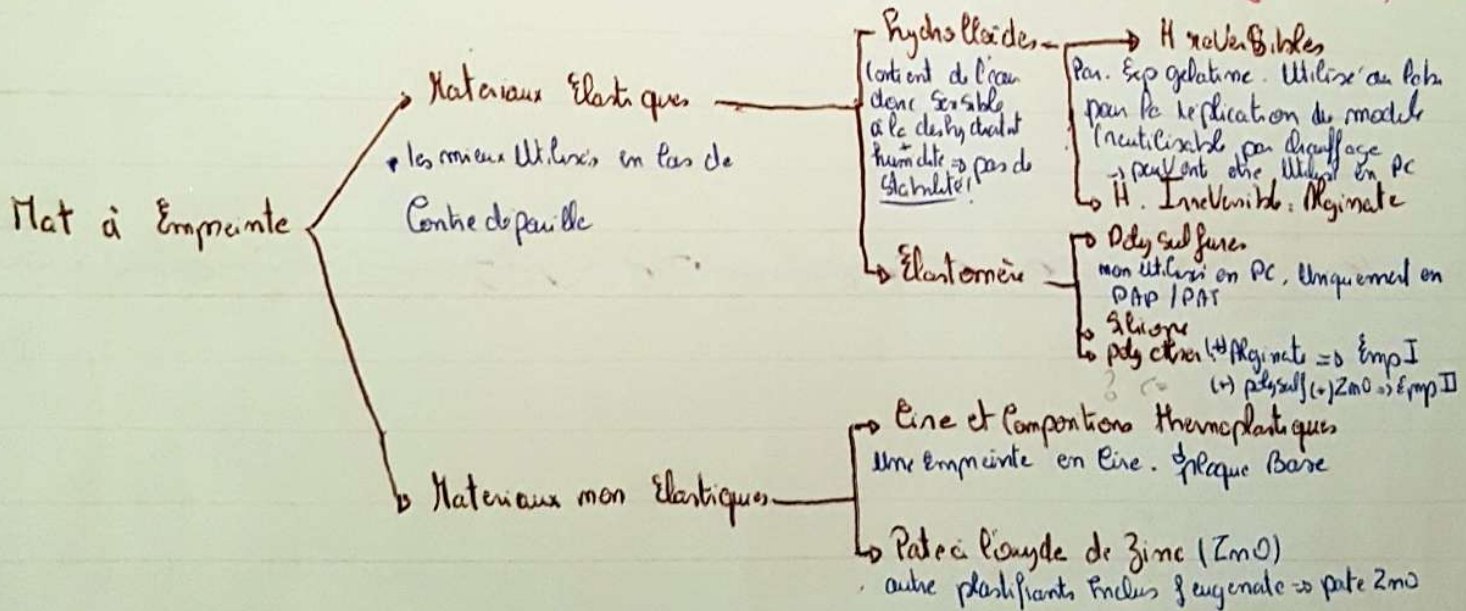 Mat à Empreinte
Materiaux Elastiques
• les mieux Utilisés en Cas de
Contre depouille
hydrolloïdes
Contient de l'eau
donc Sensible
à la deshydratat
+
humidité => pas de
Stabilité!
H reversibles
Par. Exp gelatine. Utilisé au labo
pour la réplication du modele
(reutilisable par chauffage
-> peuvent etre Utilisé en PC
H. Irreversible: Alginate
Elastomère
Polysulfures
non utilisé en PC, Uniquement en
PAP / PAT
Silicone
poly ether (+) Alginate => Emp I
(+) polysulf (+) ZnO => Emp II
Materiaux non Elastiques
Cire et Compositions thermoplastiques
Une Empreinte en Cire. plaque Base
Pate à l'oxyde de Zinc (ZnO)
autre plastifiants Inclus eugenate => pate ZnO